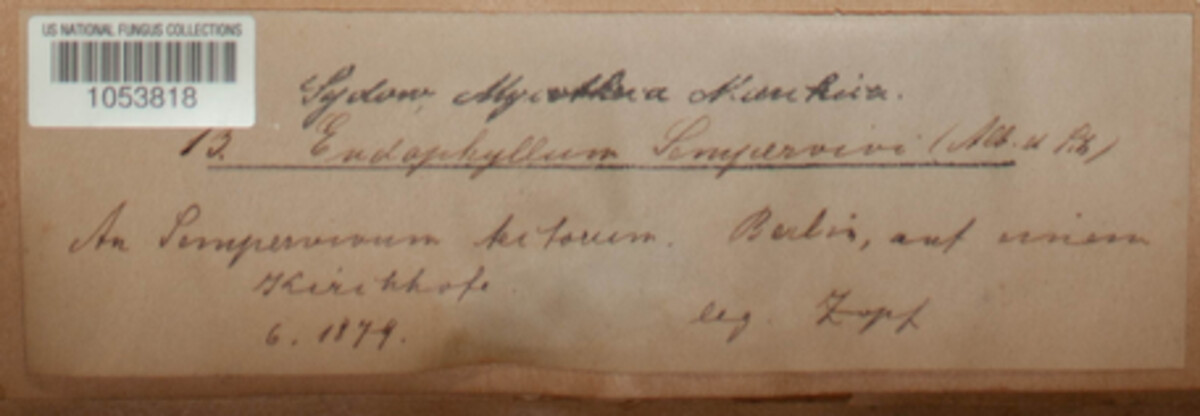 US NATIONAL FUNGUS COLLECTIONS
1053818
Sydow, Mycotheca Marchica.
13. Endophyllum Sempervivi (Alb. et Sch.)
An Sempervivum tectorum. Berlin, auf einem
Kirchhofe
6. 1879. leg. Zopf